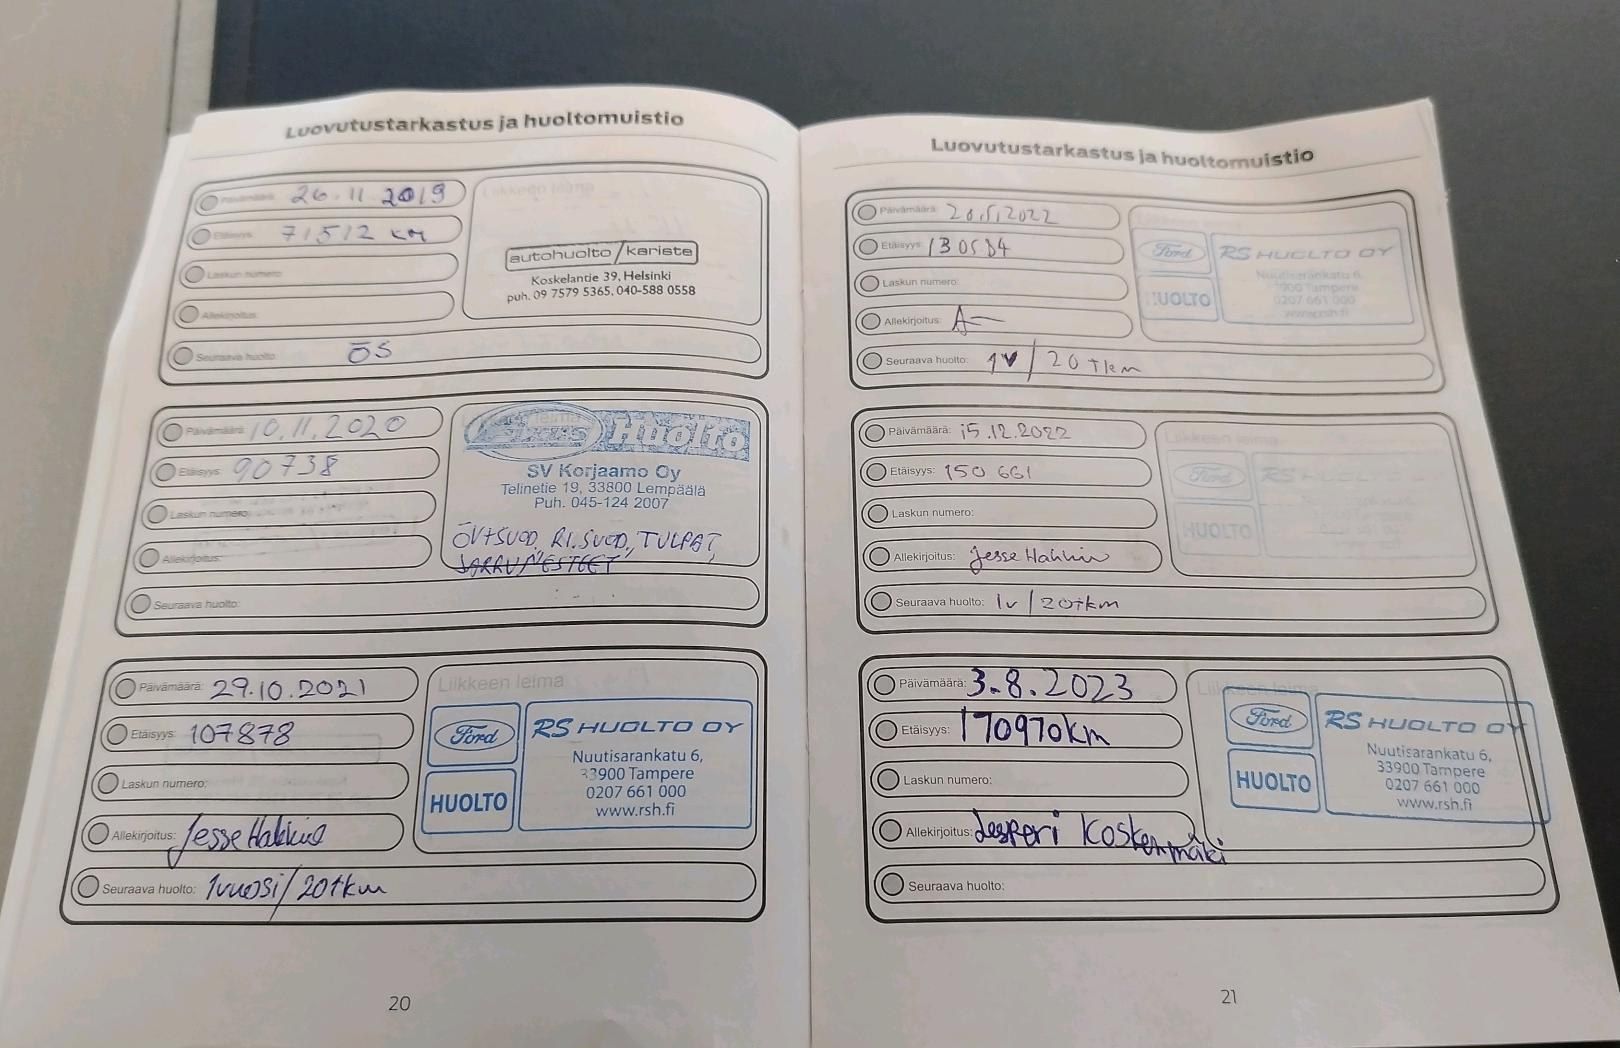 Luovutustarkastus ja huoltomuistio
Päivämäärä: 26.11.2019
Etäisyys: 71512 km
Laskun numero:
Allekirjoitus:
Seuraava huolto: ÖS
Liikkeen leima
autohuolto/kariste
Koskelantie 39, Helsinki
puh. 09 7579 5365, 040-588 0558
Päivämäärä: 10.11.2020
Etäisyys: 90738
Laskun numero:
Allekirjoitus:
Seuraava huolto:
Huolto
SV Korjaamo Oy
Telinetie 19, 33800 Lempäälä
Puh. 045-124 2007
ÖV+SUOD, RI.SUOD, TULPAT,
JARRUNESTEET
Päivämäärä: 29.10.2021
Etäisyys: 107878
Laskun numero:
Allekirjoitus: Jesse
Seuraava huolto: 1vuosi/20tkm
Liikkeen leima
Ford
HUOLTO
RS HUOLTO OY
Nuutisarankatu 6,
33900 Tampere
0207 661 000
www.rsh.fi
20
Luovutustarkastus ja huoltomuistio
Päivämäärä: 20.5.2022
Etäisyys: 130584
Laskun numero:
Allekirjoitus:
Seuraava huolto: 1v/20 tkm
Ford
HUOLTO
RS HUOLTO OY
Nuutisarankatu 6,
33900 Tampere
0207 661 000
www.rsh.fi
Päivämäärä: 15.12.2022
Etäisyys: 150 661
Laskun numero:
Allekirjoitus: Jesse
Seuraava huolto: 1v/20tkm
Liikkeen leima
Ford
HUOLTO
RS HUOLTO OY
Päivämäärä: 3.8.2023
Etäisyys: 170970km
Laskun numero:
Allekirjoitus: Jesperi Koskenmäki
Seuraava huolto:
Liikkeen leima
Ford
HUOLTO
RS HUOLTO OY
Nuutisarankatu 6,
33900 Tampere
0207 661 000
www.rsh.fi
21